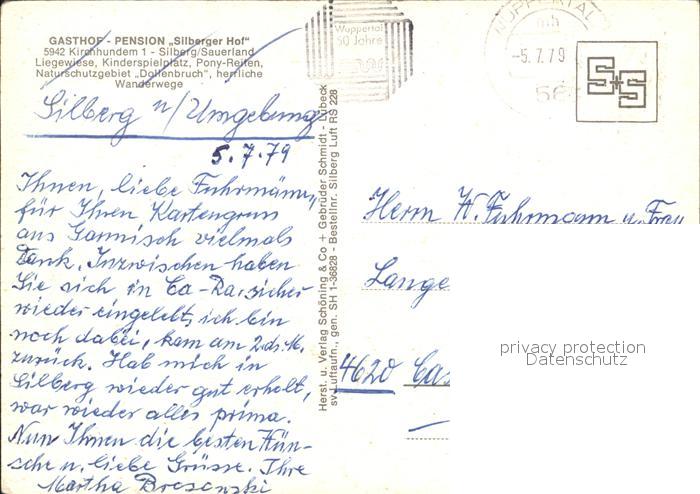 GASTHOF - PENSION „Silberger Hof"
5942 Kirchhundem 1 - Silberg/Sauerland
Liegewiese, Kinderspielplatz, Pony-Reiten,
Naturschutzgebiet „Dollenbruch", herrliche
Wanderwege
Silberg u/Umgebung
5.7.79
Ihnen, liebe Fuhrmänn,
für Ihren Kartengruss
aus Garmisch vielmals
Dank. Inzwischen haben
Sie sich in Ca-Ra. sicher
wieder eingelebt, ich bin
noch dabei, kam am 2. ds. M.
zurück. Hab mich in
Silberg wieder gut erholt,
war wieder alles prima.
Nun Ihnen die besten Wün-
sche u. liebe Grüsse. Ihre
Martha
Herst. u. Verlag Schöning & Co + Gebrüder Schmidt - Lübeck
sv Luftaufn., gen. SH 1-36828 - Bestellnr. Silberg Luft RS 228
Wuppertal
50 Jahre
WUPPERTAL
mh
-5.7.79
56
S+S
Herrn W. Fuhrmann u. Frau
Lange
4620 Cas
privacy protection
Datenschutz